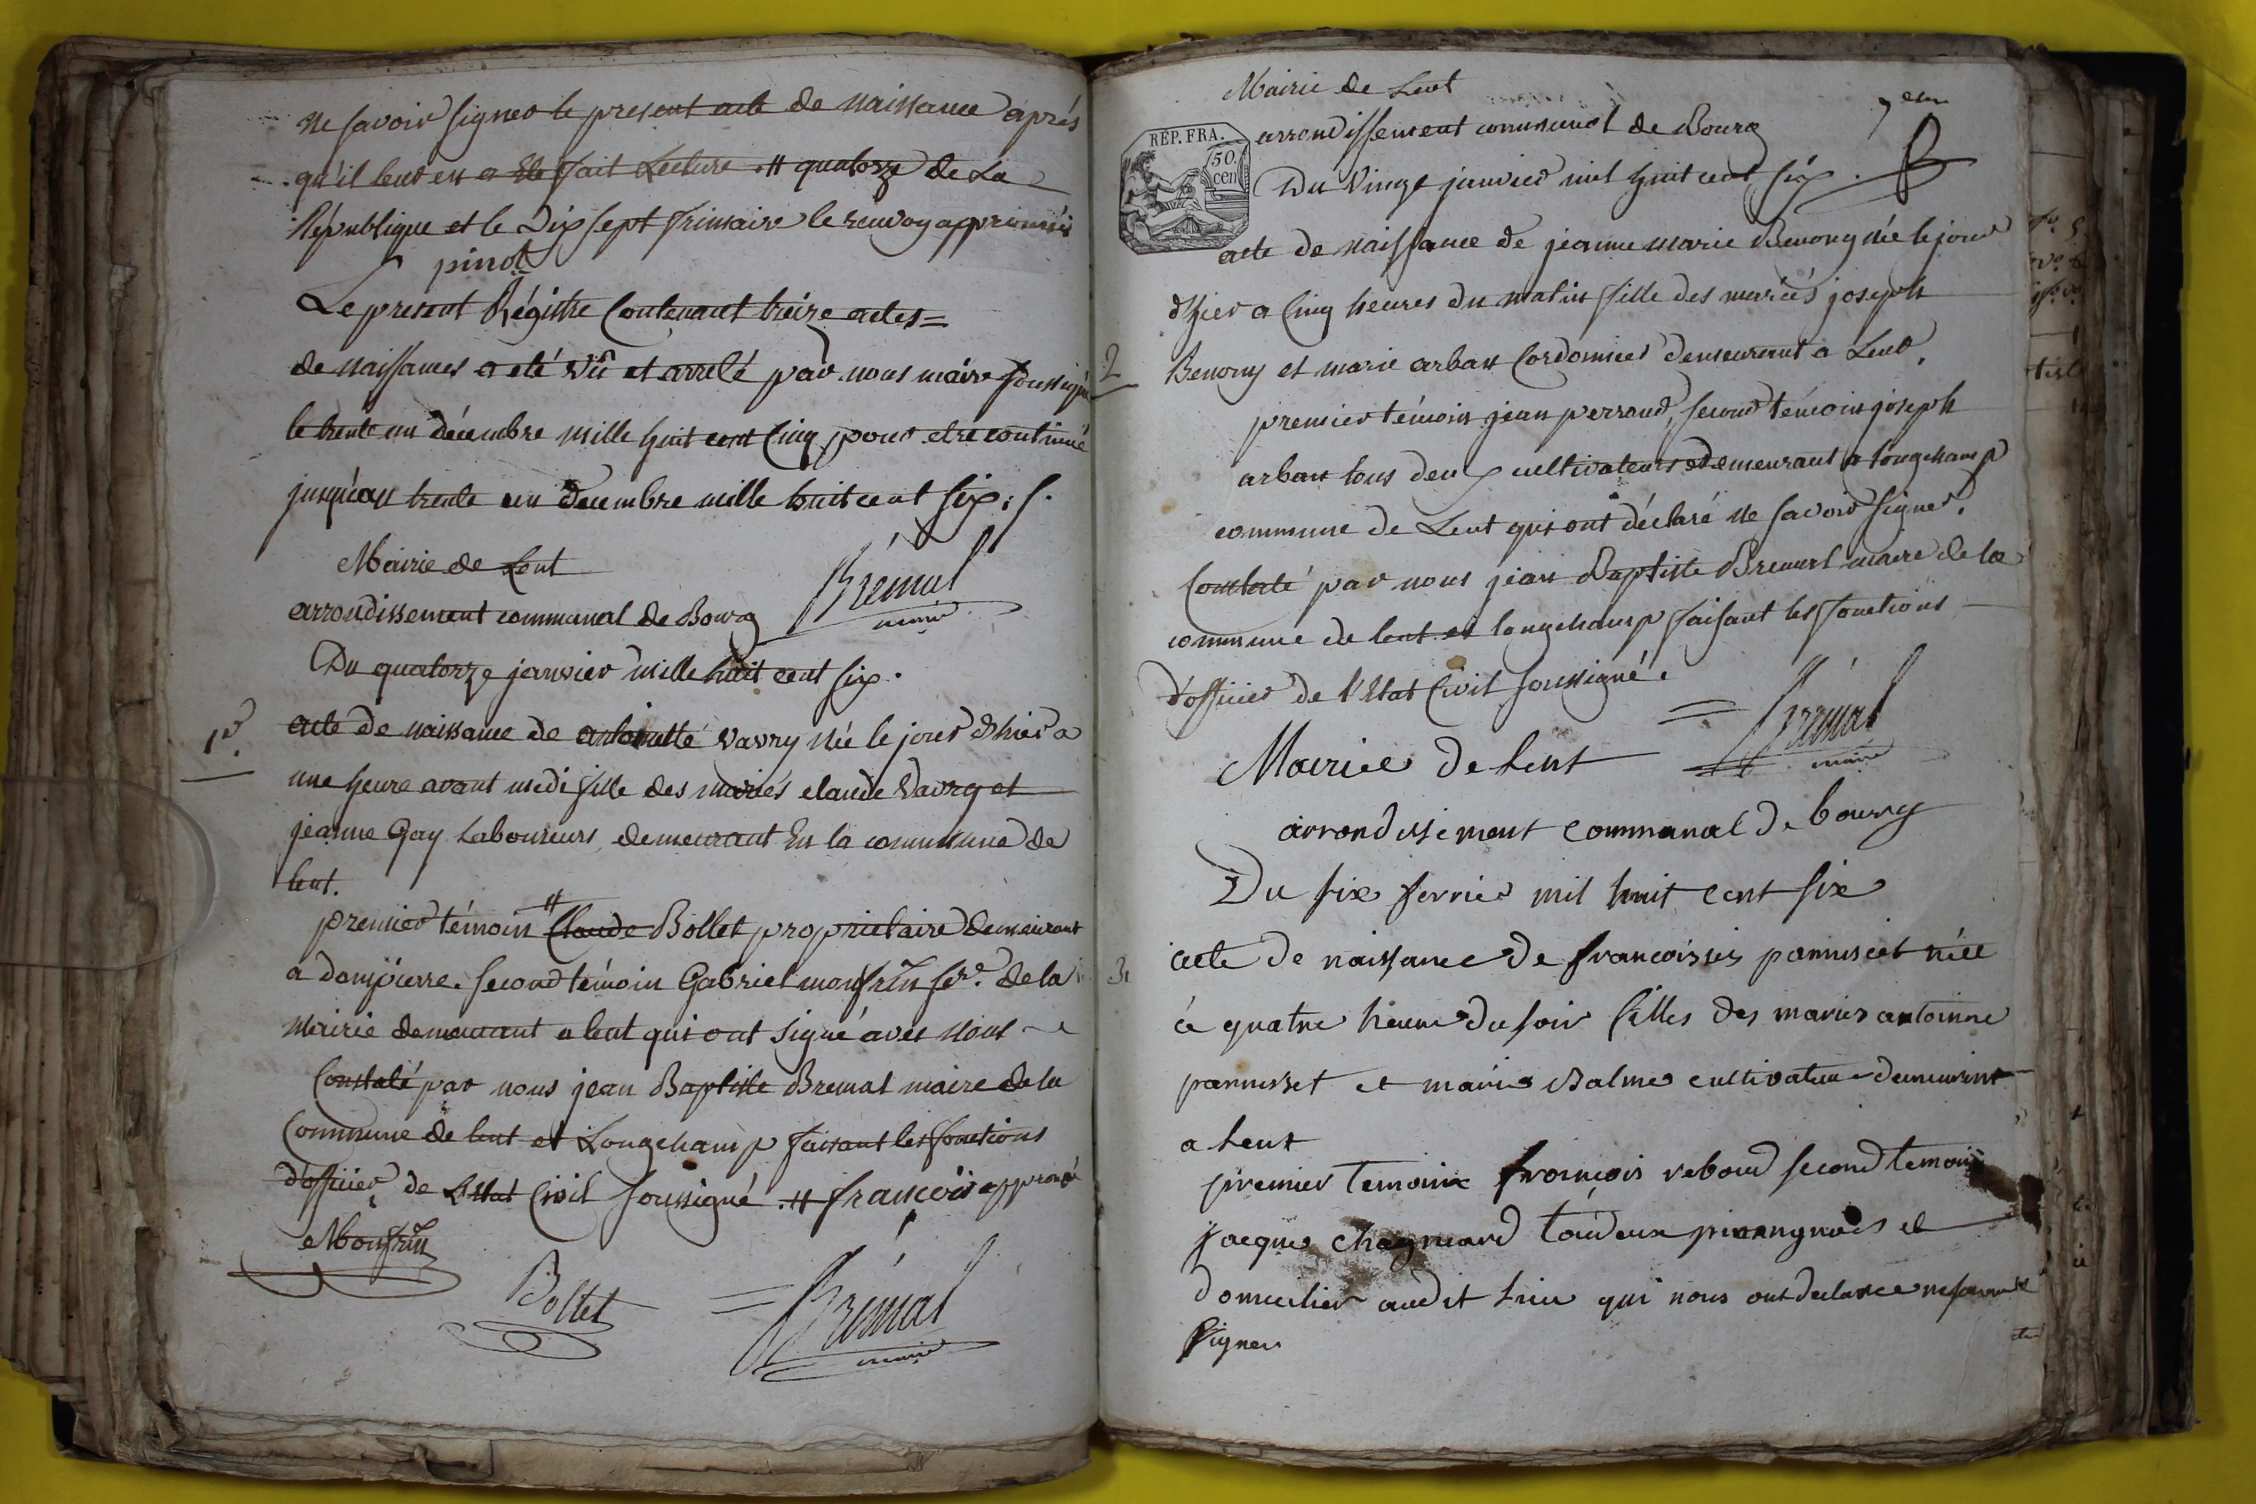 ne savoir signer le present acte de naissance après
qu'il leur en a été fait Lecture .# quatorze de La
République et le Dix sept frimaire le renvoy approuvés
pinot
Le present Régistre Contenant treize actes =
de naissances a eté vû et arrelé par nous maire soussigné
le trente un décembre mille huit cent Cinq pour etre continué
jusqu'au trente un decembre mille huit cent six ; s.
Mairie de Lent
Brémal
maire
arrondissement communal de Bourg
Du quatorze janvier mille huit cent six.
1er
acte de naissance de antoinette Vavry née le jour d'hier a
une heure avant midi fille des mariés claude Vavry et
jeanne Gay Laboureurs demeurant En la commune de
lent.
premier témoin # Claude Bollet proprietaire demeurant
a dompierre. second témoin Gabriel monfrin ser. de la
Mairie demeurant a lent qui ont signé avec nous
Constaté par nous jean Baptiste Bremal maire de la
Commune de lent et Longchamp faisant les fonctions
d'officier de L'Etat Civil soussigné .# françois approuvé
Monfrin
Bollet
= Brémal
maire
Mairie de Lent
REP. FRA.
50.
cen
arrondissement communal de Bourg
Du Vingt janvier mil huit cent six.
acte de naissance de jeanne marie Benony née le jour
d'hier a Cinq heures du matin fille des mariés joseph
2
Benony et marie arban Cordonnier demeurant a Lent.
premier témoin jean perraud, second témoin joseph
arban tous deux cultivateurs demeurant a longchamp
commune de Lent qui ont déclaré ne savoir signer.
Constaté par nous jean Baptiste Bremal maire de la
commune de lent et longchamp faisant les fonctions
d'officier de l'Etat Civil soussigné.
= Brémal
maire
Mairiee de Lent
arrondissement communal de bourg
Du six fevrier mil huit cent six
3
acte de naissance de pannisset née
a quatre heure du soir filles des maries antoinne
pannisset et marie Balme cultivateur demeurint
a Lent
premier temoin françois reboud second temoin
jacque Chagniard
domicilier audit Lieu qui nous ont declaree ne savoir
signer